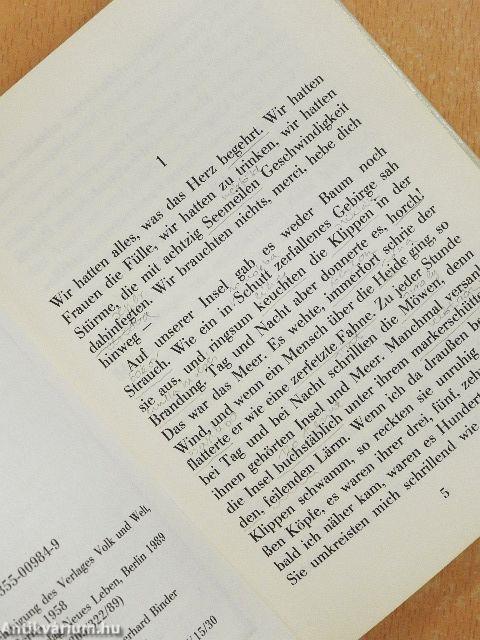 1
Wir hatten alles, was das Herz begehrt. Wir hatten
Frauen die Fülle, wir hatten zu trinken, wir hatten
Stürme, die mit achtzig Seemeilen Geschwindigkeit
dahinfegten. Wir brauchten nichts, merci, hebe dich
hinweg —
Auf unserer Insel gab es weder Baum noch
Strauch. Wie ein in Schutt zerfallenes Gebirge sah
sie aus, und ringsum keuchten die Klippen in der
Brandung. Tag und Nacht aber donnerte es, horch!
Das war das Meer. Es wehte, immerfort schrie der
Wind, und wenn ein Mensch über die Heide ging, so
flatterte er wie eine zerfetzte Fahne. Zu jeder Stunde
bei Tag und bei Nacht schrillten die Möwen, denn
ihnen gehörten Insel und Meer. Manchmal versank
die Insel buchstäblich unter ihrem markerschütte
den, feilenden Lärm. Wenn ich da draußen be
Klippen schwamm, so reckten sie unruhig
ßen Köpfe, es waren ihrer drei, fünf, zeh
bald ich näher kam, waren es Hundert
Sie umkreisten mich schrillend wie
5
355-00984-9
migung des Verlages Volk und Welt,
1958
Neues Leben, Berlin 1989
22/89)
erhard Binder
/15/30
Antikvárium.hu